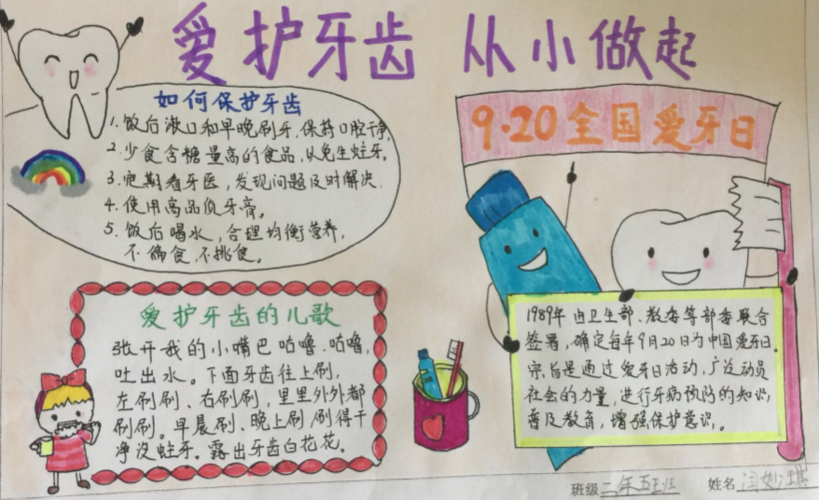 爱护牙齿 从小做起
如何保护牙齿
1. 饭后漱口和早晚刷牙.保持口腔干净.
2. 少食含糖量高的食品,从免生蛀牙。
3. 定期看牙医,发现问题及时解决.
4. 使用高品质牙膏。
5. 饭后喝水,合理均衡营养,
不偏食.不挑食。
9·20全国爱牙日
爱护牙齿的儿歌
张开我的小嘴巴咕噜.咕噜,
吐出水。下面牙齿往上刷,
左刷刷、右刷刷,里里外外都
刷刷。早晨刷、晚上刷刷得干
净没蛀牙。露出牙齿白花花。
1989年由卫生部、教委等部委联合
签署,确定每年9月20日为中国爱牙日.
宗旨是通过爱牙日活动,广泛动员
社会的力量,进行牙病预防的知识,
普及教育,增强保护意识。
班级 二年五班 姓名 闫妙琪